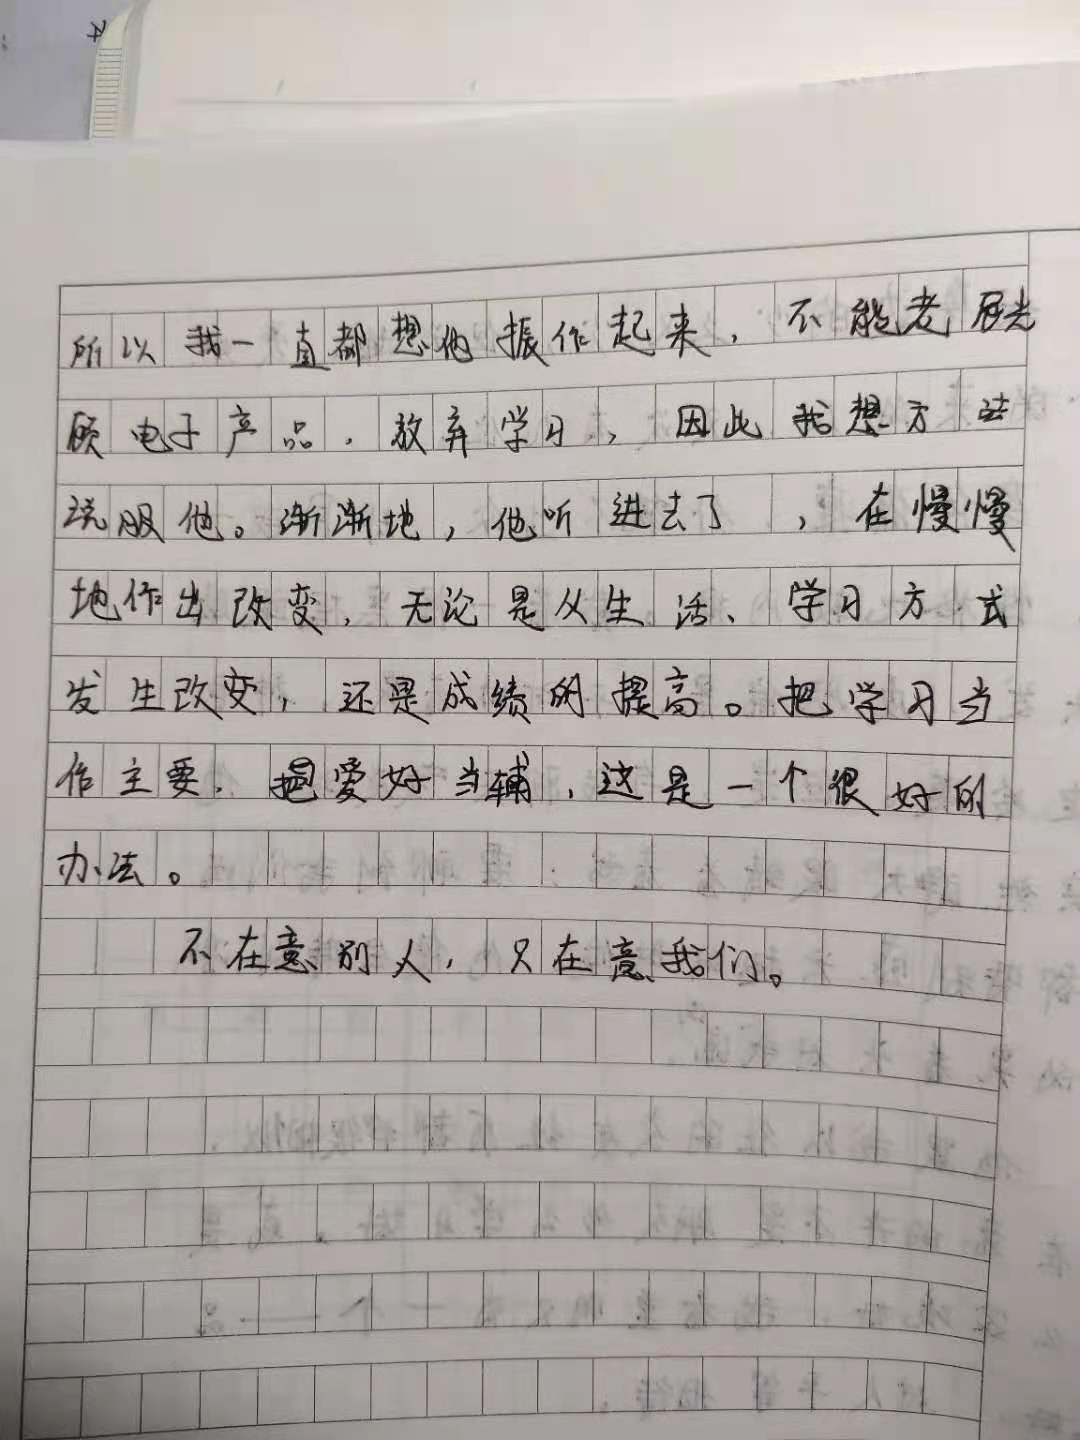 所以我一直都想他振作起来，不能老是光
顾电子产品，放弃学习，因此我想方法
说服他。渐渐地，他听进去了，在慢慢
地作出改变，无论是从生活、学习方式
发生改变，还是成绩的提高。把学习当
作主要，把爱好当辅，这是一个很好的
办法。
不在意别人，只在意我们。